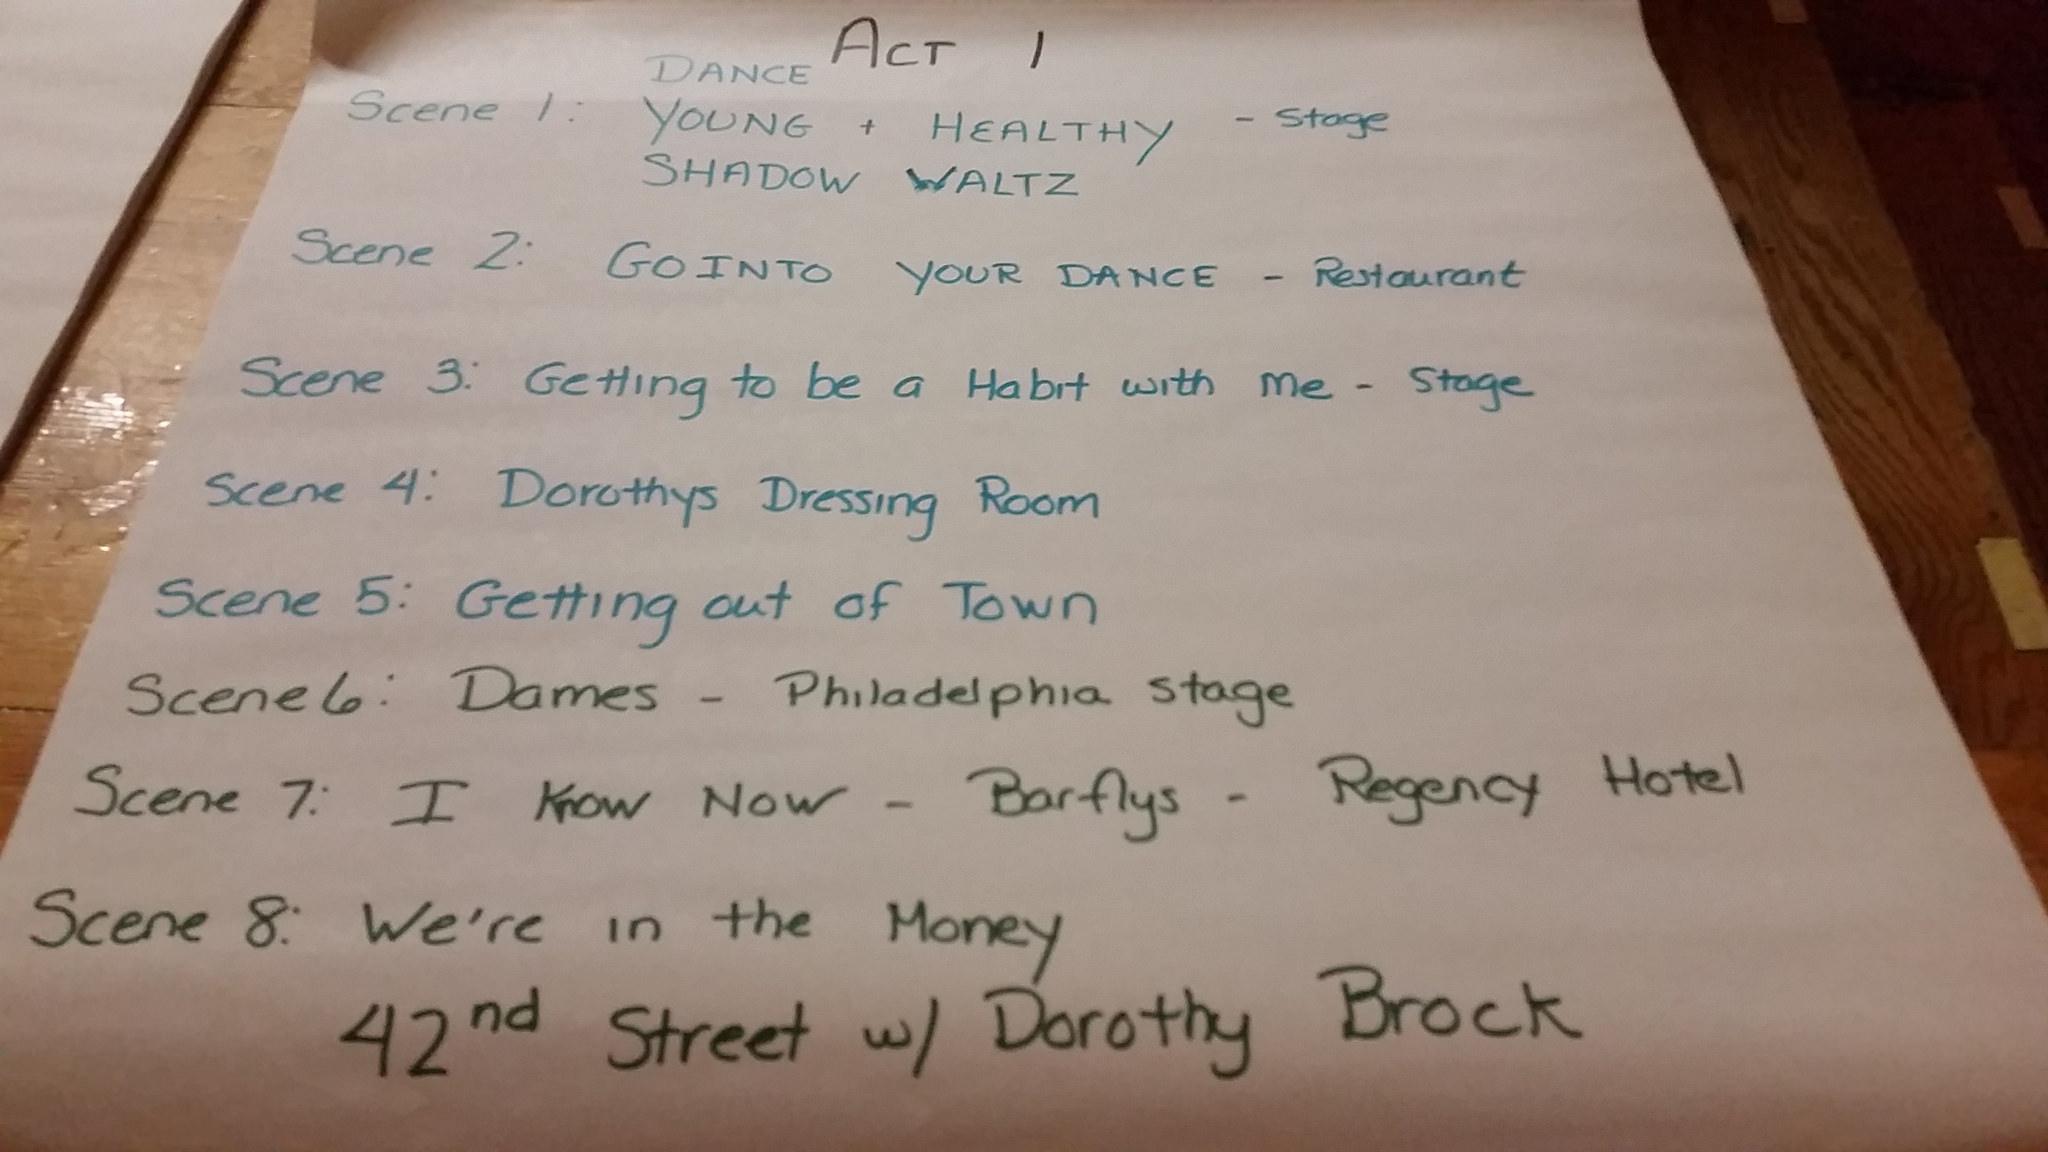 ACT 1
DANCE
Scene 1: YOUNG + HEALTHY - Stage
SHADOW WALTZ
Scene 2: GO INTO YOUR DANCE - Restaurant
Scene 3: Getting to be a Habit with Me - Stage
Scene 4: Dorothys Dressing Room
Scene 5: Getting out of Town
Scene 6: Dames - Philadelphia Stage
Scene 7: I Know Now - Barflys - Regency Hotel
Scene 8: We're in the Money
42nd Street w/ Dorothy Brock